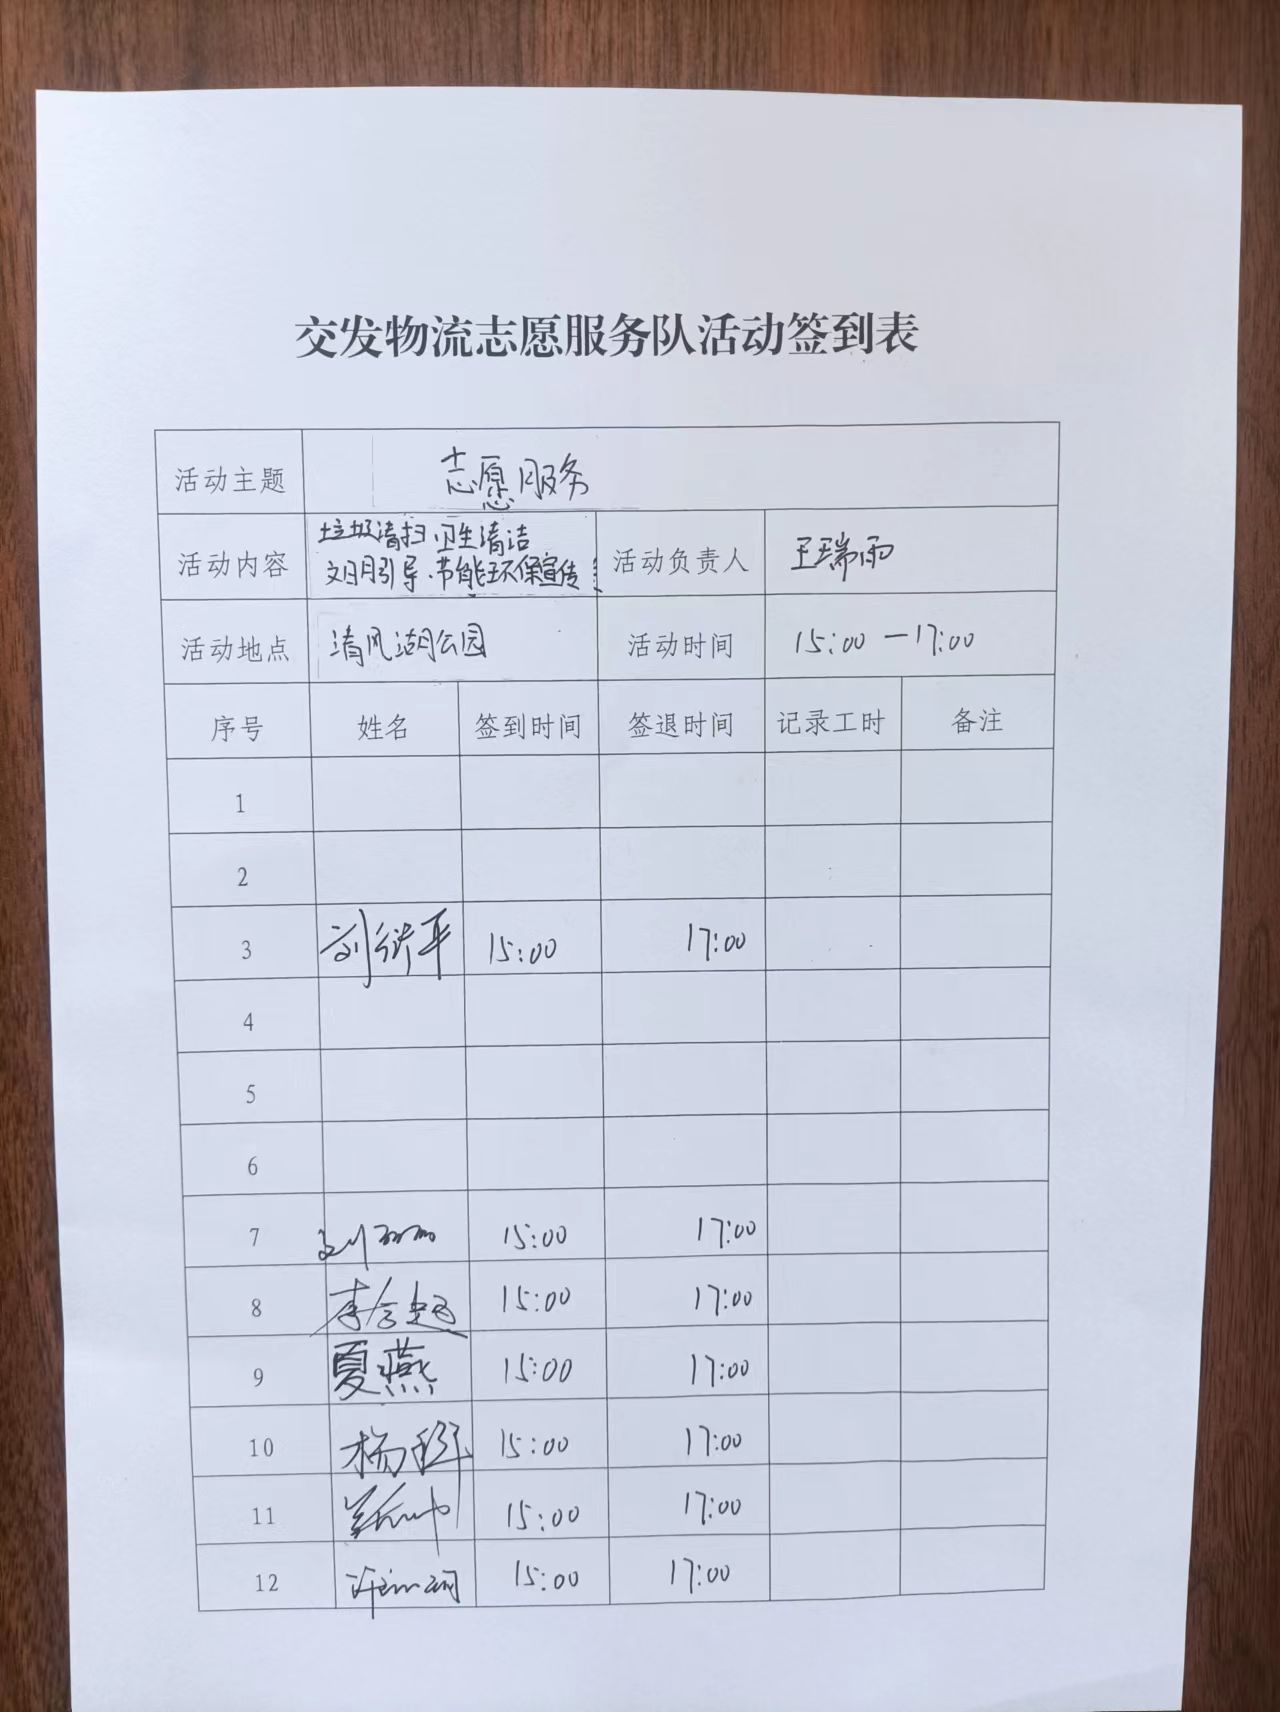 交发物流志愿服务队活动签到表
活动主题 志愿服务
活动内容 垃圾清扫.卫生清洁 活动负责人 王瑞雨
文明引导.节能环保宣传
活动地点 清风湖公园 活动时间 15:00—17:00
序号 姓名 签到时间 签退时间 记录工时 备注
1
2
3 15:00 17:00
4
5
6
7 15:00 17:00
8 15:00 17:00
9 夏燕 15:00 17:00
10 15:00 17:00
11 15:00 17:00
12 15:00 17:00